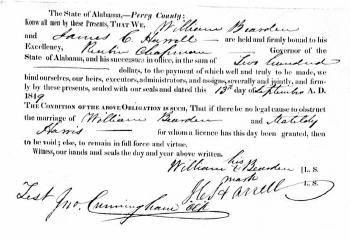 The State of Alabama,—Perry County:
Know all men by these Presents, THAT WE, William Bearden
and James C Harrell are held and firmly bound to his
Excellency, Reubin Chapman Governor of the
State of Alabama, and his successors in office, in the sum of Two hundred
dollars, to the payment of which well and truly to be made, we
bind ourselves, our heirs, executors, administrators, and assigns, severally and jointly, and firm-
ly by these presents, sealed with our seals and dated this 13th day of September A. D.
1849.
THE CONDITION OF THE ABOVE OBLIGATION IS SUCH, That if there be no legal cause to obstruct
the marriage of William Bearden and Matildy
Harris for whom a licence has this day been granted, then
to be void; else, to remain in full force and virtue.
WITNESS, our hands and seals the day and year above written.
William his Bearden [L. S.
mark
J C Harrell L. S.
Test Jno. Cunningham clk